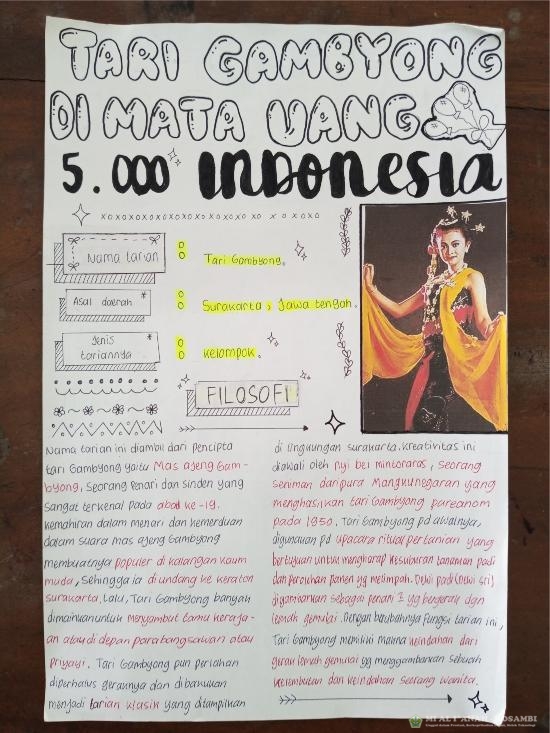 TARI GAMBYONG
DI MATA UANG
5.000 INDONESIA
xoxoxoxoxoxoxoxoxo x o x o x o
Nama tarian : Tari Gambyong.
Asal daerah : Surakarta, Jawa tengah.
Jenis
tariannya : kelompok.
FILOSOFI
Nama tarian ini diambil dari pencipta
tari Gambyong yaitu Mas ajeng Gam-
byong, seorang Penari dan sinden yang
sangat terkenal pada abad ke-19.
kemahiran dalam menari dan kemerduan
dalam suara mas ajeng Gambyong
membuatnya populer di kalangan kaum
muda, sehingga ia di undang ke keraton
surakarta. Lalu, Tari Gambyong banyak
dimainkan untuk menyambut tamu keraja-
an atau di depan para bangsawan atau
priyayi. Tari Gambyong pun perlahan
diperhalus geraknya dan dibakukan
menjadi tarian klasik yang ditampilkan
di lingkungan surakarta. kreativitas ini
diawali oleh nyi bei mintoraras, seorang
seniman dari pura Mangkunegaran yang
menghasilkan tari Gambyong pareanom
pada 1950. Tari Gambyong pd awalnya,
digunakan pd upacara ritual pertanian yang
bertujuan untuk mengharap kesuburan tanaman padi
dan perolehan panen yg melimpah. Dewi padi (Dewi sri)
digambarkan sebagai penari2 yg bergerak dgn
lemah gemulai. Dengan berubahnya fungsi tarian ini,
Tari Gambyong memiliki makna keindahan dari
gerak lemah gemulai yg menggambarkan sebuah
kelembutan dan keindahan seorang wanita.